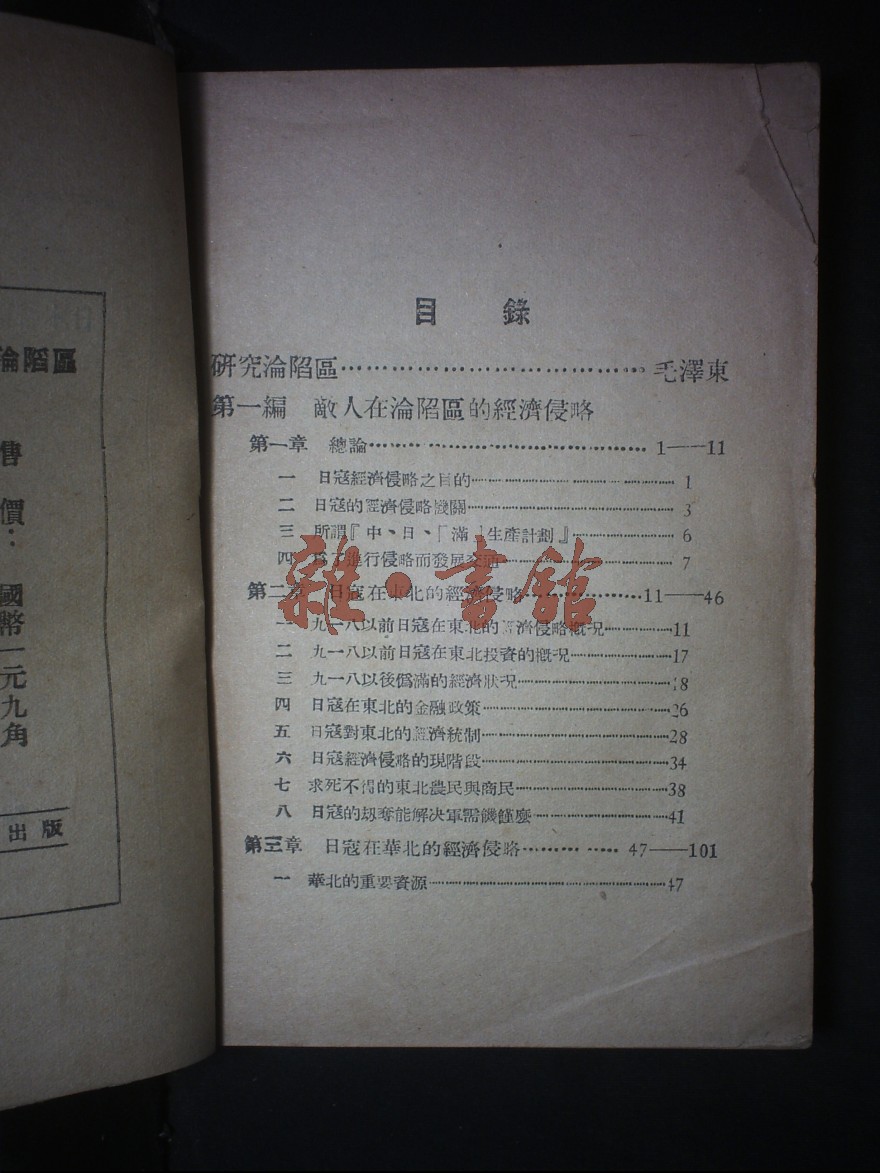 目　錄
研究淪陷區……………………………………毛澤東
第一編　敵人在淪陷區的經濟侵略
第一章　總論……………………………………1——11
一　日寇經濟侵略之目的……………………………………1
二　日寇的經濟侵略機關……………………………………3
三　所謂『中、日、「滿」生產計劃』……………………6
四　爲了進行侵略而發展交通……………………………7
第二章　日寇在東北的經濟侵略………………11——46
一　九一八以前日寇在東北的經濟侵略概況…………11
二　九一八以前日寇在東北投資的概況………………17
三　九一八以後僞滿的經濟狀況………………………18
四　日寇在東北的金融政策……………………………26
五　日寇對東北的經濟統制……………………………28
六　日寇經濟侵略的現階段……………………………34
七　求死不得的東北農民與商民………………………38
八　日寇的刼奪能解決軍需饑饉麼……………………41
第三章　日寇在華北的經濟侵略……………47——101
一　華北的重要資源……………………………………47
淪陷區
售價：國幣一元九角
出版
雜·書館